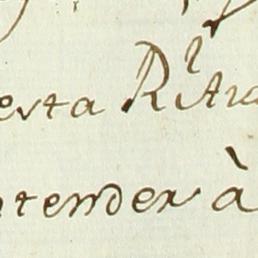 esta R.l Au
ntender à